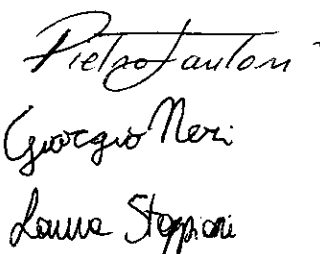 Pietro Fantoni
Giorgio Neri
Laura Stoppioni